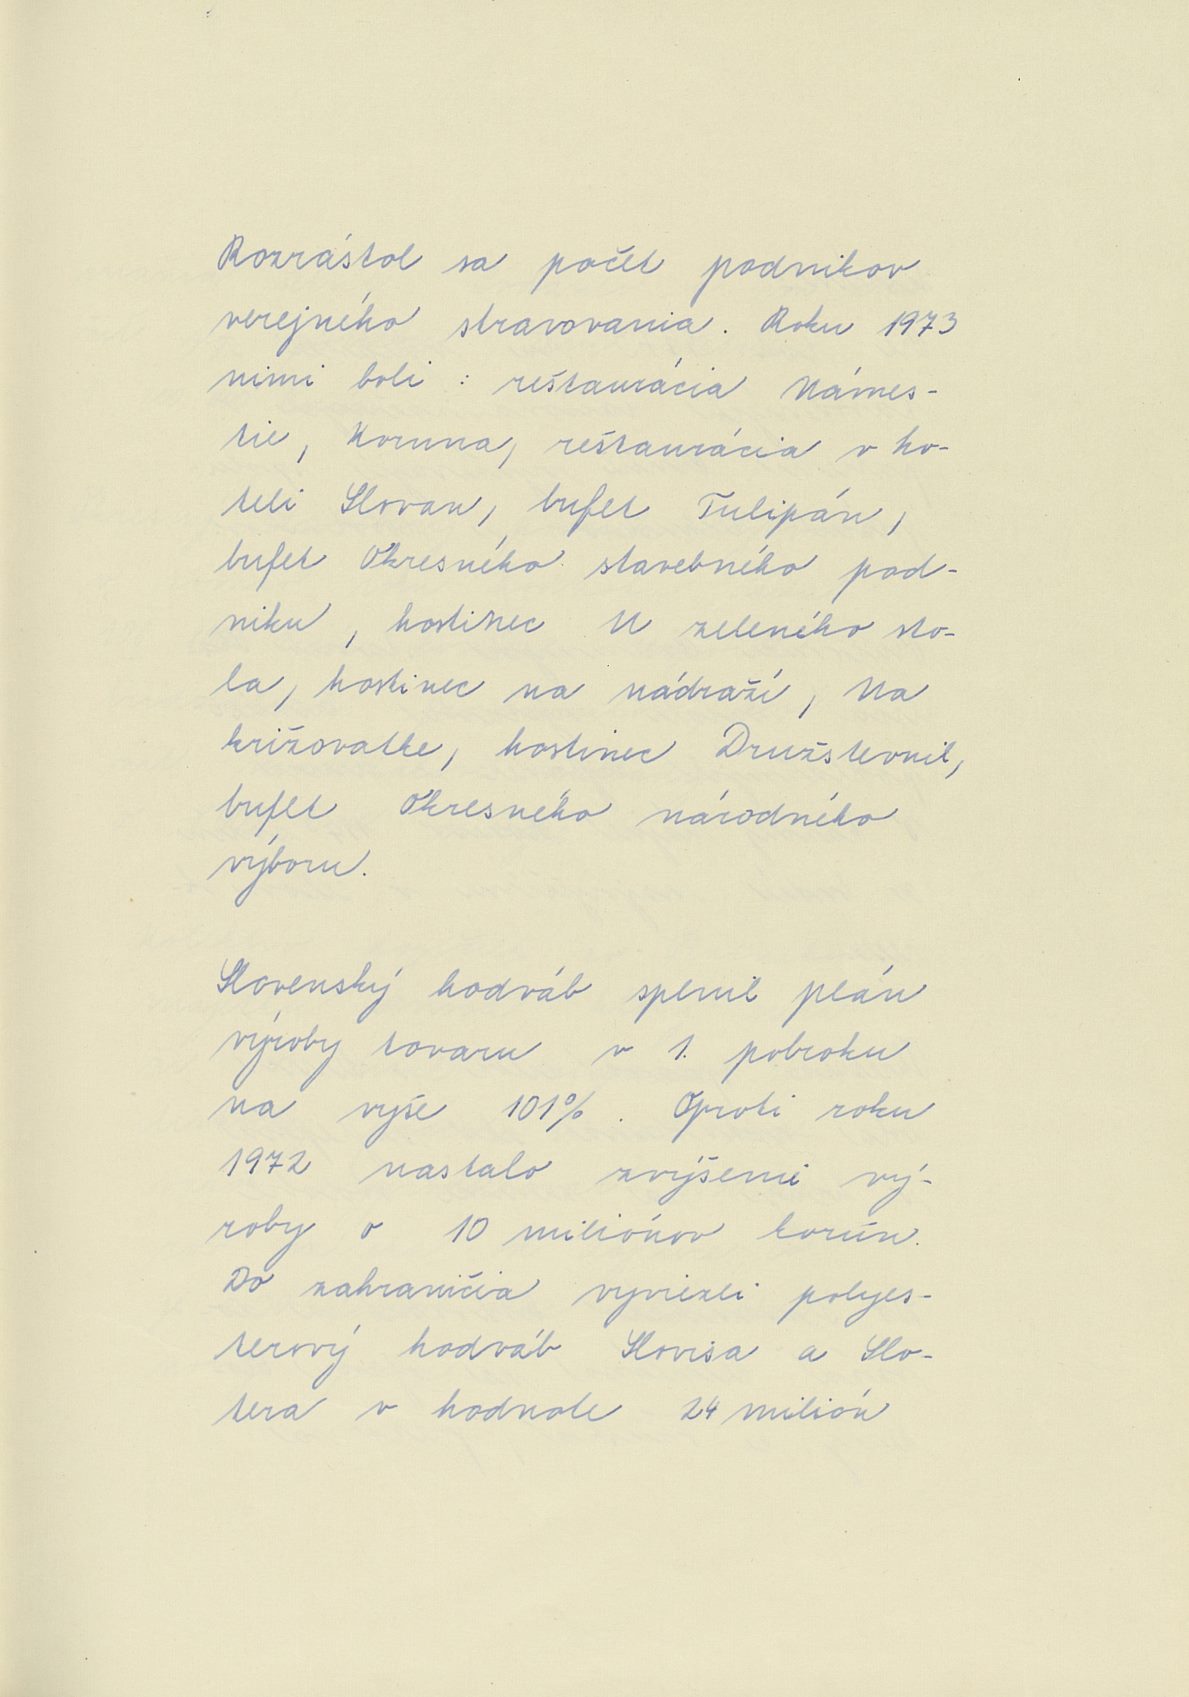 Rozrástol sa počet podnikov
verejného stravovania. Roku 1973
nimi boli : reštaurácia Námes-
tie, Koruna, reštaurácia v ho-
teli Slovan, bufet Tulipán,
bufet Okresného stavebného pod-
niku, hostinec U zeleného sto-
la, hostinec na nádraží, Na
križovatke, hostinec Družstevník,
bufet Okresného národného
výboru.
Slovenský hodváb splnil plán
výroby tovaru v 1. polroku
na vyše 101% . Oproti roku
1972 nastalo zvýšenie vý-
roby o 10 miliónov korún.
Do zahraničia vyviezli polyes-
terový hodváb Slovisa a Slo-
tera v hodnote 24 milión